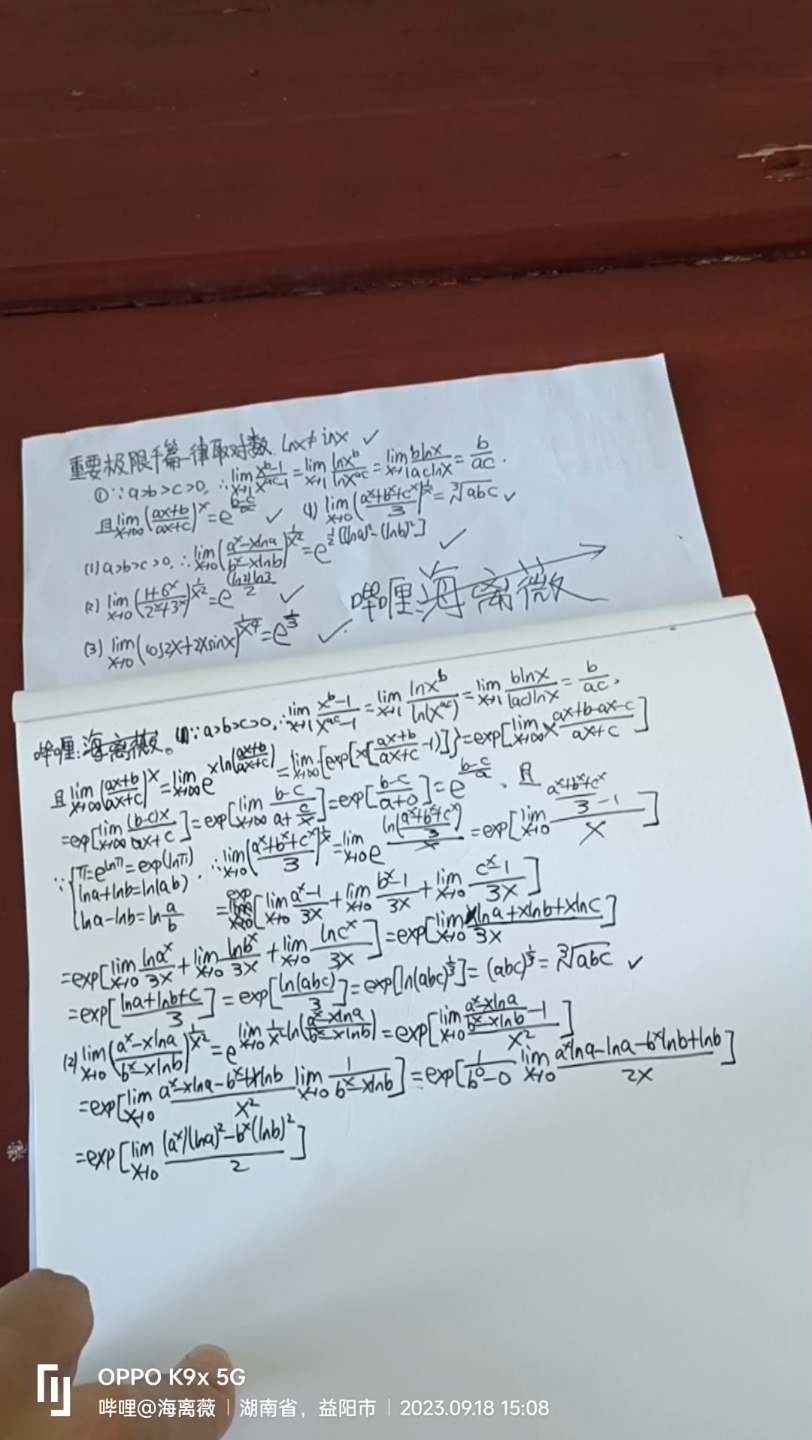 重要极限千篇一律取对数. lnx≠inx ✓
①∵a>b>c>0, ∴lim_{x→1} (x^b-1)/(x^{ac}-1) = lim_{x→1} lnx^b/lnx^{ac} = lim_{x→1} blnx/(aclnx) = b/ac.
且lim_{x→∞} ((ax+b)/(ax+c))^x = e^{(b-c)/a} ✓ (4) lim_{x→0} ((a^x+b^x+c^x)/3)^{1/x} = ∛(abc) ✓
(1) a>b>c>0, ∴lim_{x→0} ((a^x-xlna)/(b^x-xlnb))^{1/x^2} = e^{1/2[(lna)^2-(lnb)^2]} ✓
(2) lim_{x→0} ((1+6^x)/(2^x+3^x))^{1/x^2} = e^{ln2ln3/2} ✓
哔哩:海离薇
(3) lim_{x→0} (cos2x+2xsinx)^{1/x^4} = e^{1/3} ✓.
哔哩:海离薇。(1)∵a>b>c>0, ∴lim_{x→1} (x^b-1)/(x^{ac}-1) = lim_{x→1} lnx^b/ln(x^{ac}) = lim_{x→1} blnx/((ac)lnx) = b/ac,
且lim_{x→∞} ((ax+b)/(ax+c))^x = lim_{x→∞} e^{xln((ax+b)/(ax+c))} = lim_{x→∞} {exp[x[(ax+b)/(ax+c) -1)]} = exp[lim_{x→∞} x (ax+b-ax-c)/(ax+c)]
=exp[lim_{x→∞} (b-c)x/(ax+c)] = exp[lim_{x→∞} (b-c)/(a+c/x)] = exp[(b-c)/(a+0)] = e^{(b-c)/a}、且
∵{π=e^{lnπ}=exp(lnπ) . ∴lim_{x→0} ((a^x+b^x+c^x)/3)^{1/x} = lim_{x→0} e^{ln((a^x+b^x+c^x)/3)/x} = exp[lim_{x→0} ((a^x+b^x+c^x)/3 -1)/x]
lna+lnb=ln(ab)
lna-lnb=ln a/b = exp[lim_{x→0} (a^x-1)/3x + lim_{x→0} (b^x-1)/3x + lim_{x→0} (c^x-1)/3x]
=exp[lim_{x→0} lna^x/3x + lim_{x→0} lnb^x/3x + lim_{x→0} lnc^x/3x] = exp[lim_{x→0} (xlna+xlnb+xlnc)/3x]
=exp[(lna+lnb+c)/3] = exp[ln(abc)/3] = exp[ln(abc)^{1/3}] = (abc)^{1/3} = ∛(abc) ✓
(2) lim_{x→0} ((a^x-xlna)/(b^x-xlnb))^{1/x^2} = e^{lim_{x→0} 1/x^2 ln((a^x-xlna)/(b^x-xlnb))} = exp[lim_{x→0} ((a^x-xlna)/(b^x-xlnb) -1)/x^2]
=exp[lim_{x→0} (a^x-xlna-b^x+xlnb)/x^2 lim_{x→0} 1/(b^x-xlnb)] = exp[1/(b^0-0) lim_{x→0} (a^xlna-lna-b^xlnb+lnb)/2x]
=exp[lim_{x→0} ((a^x)(lna)^2-b^x(lnb)^2)/2]
OPPO K9x 5G
哔哩@海离薇 | 湖南省，益阳市 | 2023.09.18 15:08